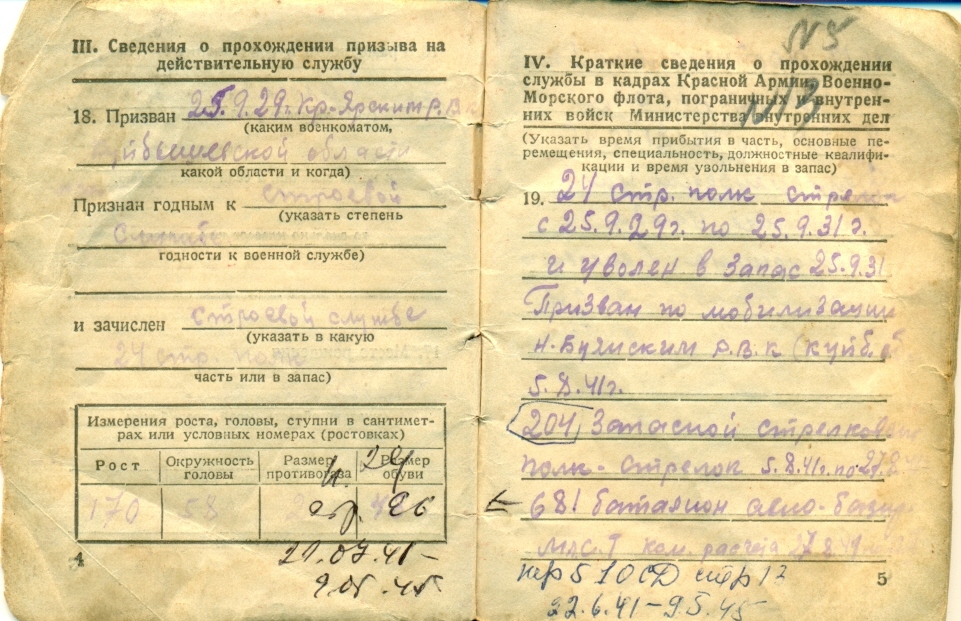 III. Сведения о прохождении призыва на
действительную службу
18. Призван 25.9.29г. Кр-Ярским Р.В.
(каким военкоматом,
области
какой области и когда)
Признан годным к строевой
(указать степень
службе
годности к военной службе)
и зачислен строевой службе
(указать в какую
24 стр. полк
часть или в запас)
Измерения роста, головы, ступни в сантимет-
рах или условных номерах (ростовках)
Рост Окружность головы Размер противогаза Размер обуви
170 58
4
9.05.45
N5
N3
IV. Краткие сведения о прохождении
службы в кадрах Красной Армии, Военно-
Морского флота, пограничных и внутрен-
них войск Министерства внутренних дел
(Указать время прибытия в часть, основные пе-
ремещения, специальность, должностные квалифи-
кации и время увольнения в запас)
19. 24 стр. полк
с 25.9.29г. по 25.9.31г.
и уволен в запас 25.9.31
Призван по мобилизации
Р.В.К
5.8.41г.
204 Запасной
полк - стрелок 5.8.41г. по
681 батальон
ком. расчета
5
22.6.41-9.5.45